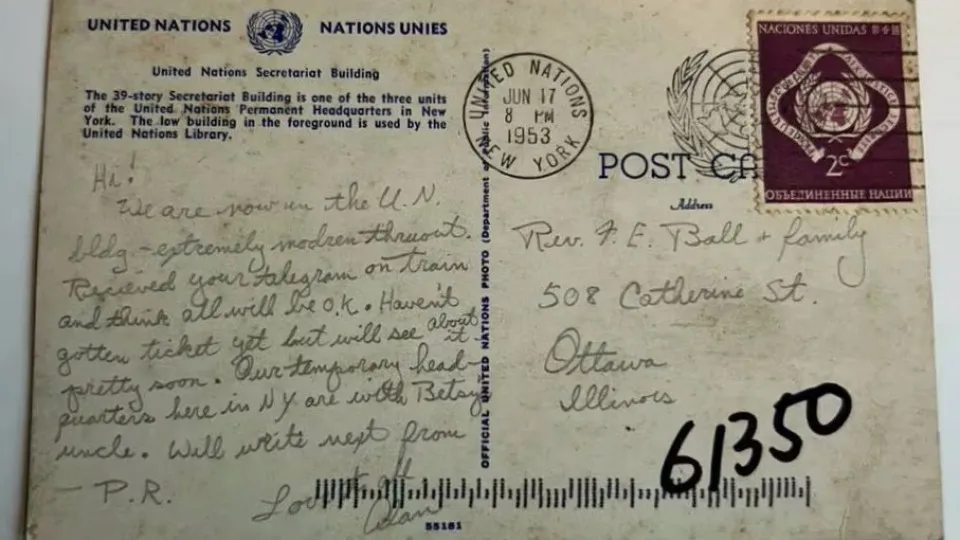 UNITED NATIONS NATIONS UNIES
United Nations Secretariat Building
The 39-story Secretariat Building is one of the three units
of the United Nations Permanent Headquarters in New
York. The low building in the foreground is used by the
United Nations Library.
Hi!
We are now in the U.N.
bldg - extremely modren thruout.
Recieved your telegram on train
and think all will be O.K. Haven't
gotten ticket yet but will see about it
pretty soon. Our temporary head-
quarters here in NY are with Betsy's
uncle. Will write next from
- P.R.
Love to all
Alan
55181
OFFICIAL UNITED NATIONS PHOTO (Department of Public Information)
UNITED NATIONS
JUN 17
8 PM
1953
NEW YORK
NACIONES UNIDAS
2c
ОБЪЕДИНЕННЫЕ НАЦИИ
POST CA
Address
Rev. F. E. Ball + family
508 Catherine St.
Ottawa
Illinois
61350